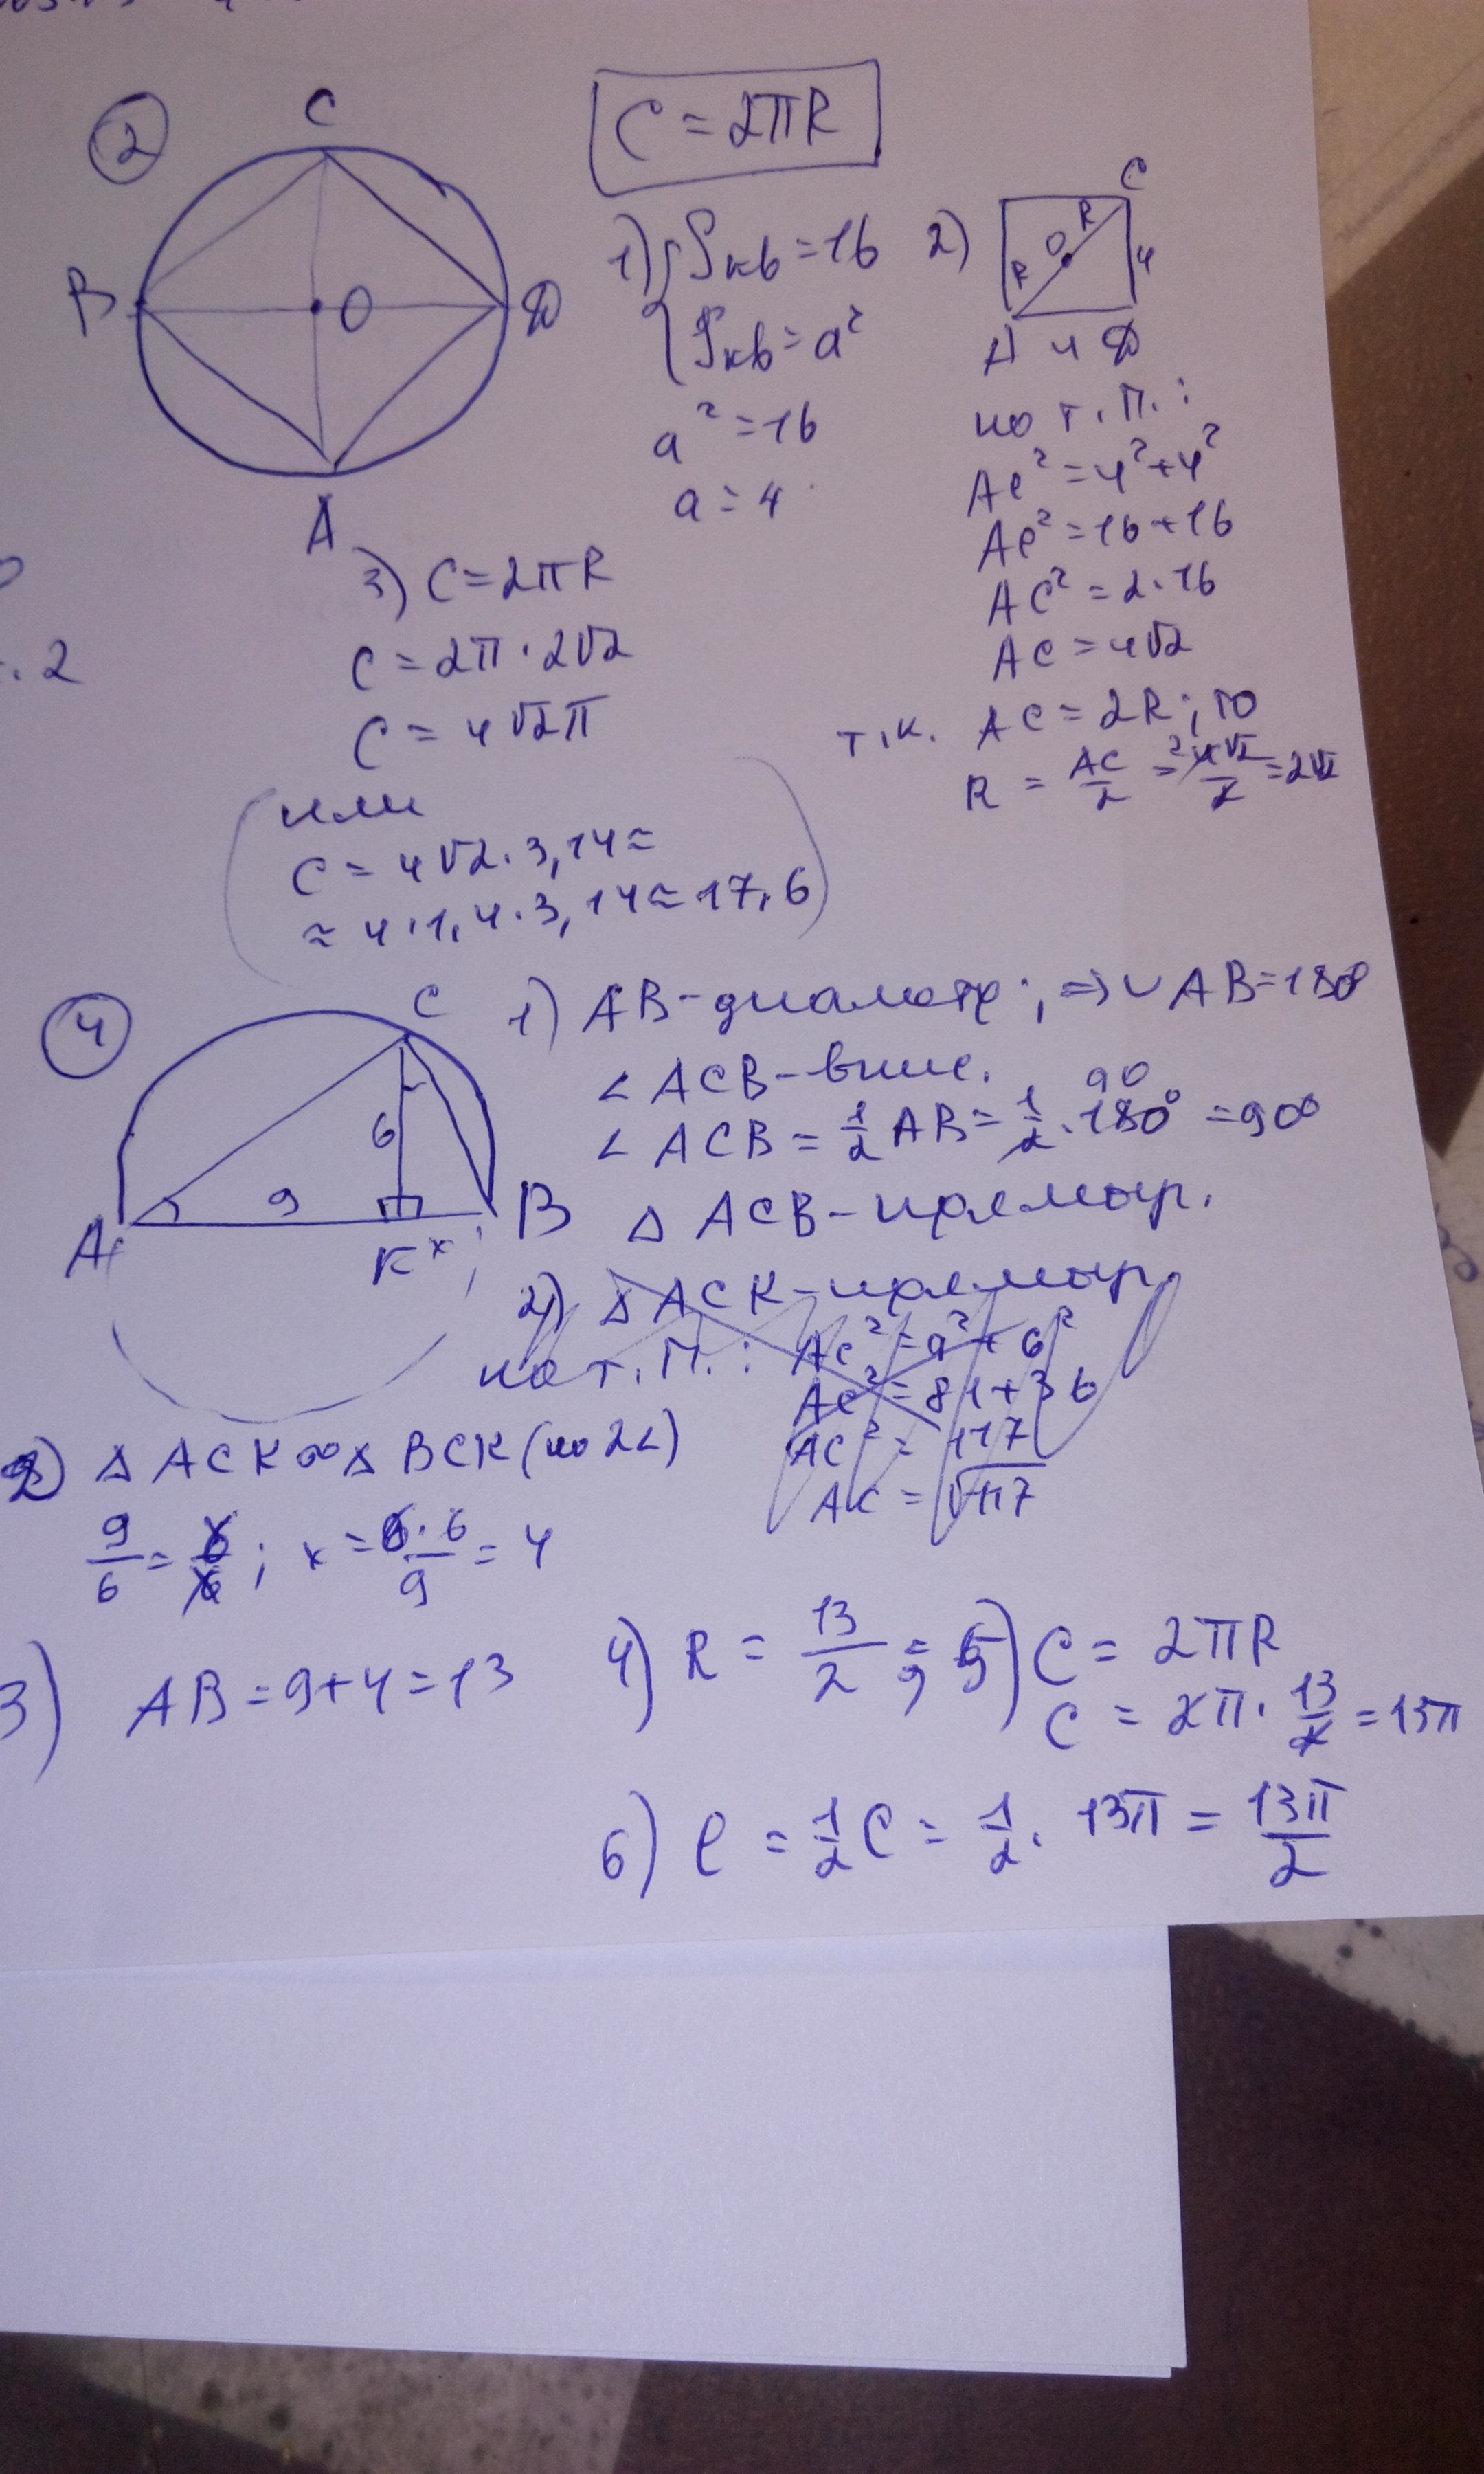 2
C
B
O
D
A
C = 2πR
1) { Sкв = 16
Sкв = a²
a² = 16
a = 4
2)
C
R
O
R
4
A 4 D
по т. П. :
AC² = 4² + 4²
AC² = 16 + 16
AC² = 2 · 16
AC = 4√2
т.к. AC = 2R ; то
R = AC/2 = 4√2/2 = 2√2
3) C = 2πR
C = 2π · 2√2
C = 4√2π
. 2
( или
C = 4√2 · 3,14 ≈
≈ 4 · 1,4 · 3,14 ≈ 17,6 )
4
C
6
9
A
K
x
B
1) AB - диаметр ; ⇒ ◡ AB = 180°
∠ ACB - впис.
∠ ACB = 1/2 AB = 1/2 · 180° = 90°
90
△ ACB - прямоуг.
2) △ ACK - прямоуг.
по т. П. : AC² = 9² + 6²
AC² = 81 + 36
AC² = 117
AC = √117
2) △ ACK ∞ △ BCK (по 2∠)
9/6 = 6/x ; x = 6 · 6/9 = 4
3) AB = 9 + 4 = 13
4) R = 13/2 ; 5) C = 2πR
C = 2π · 13/2 = 13π
6) ℓ = 1/2 C = 1/2 · 13π = 13π/2